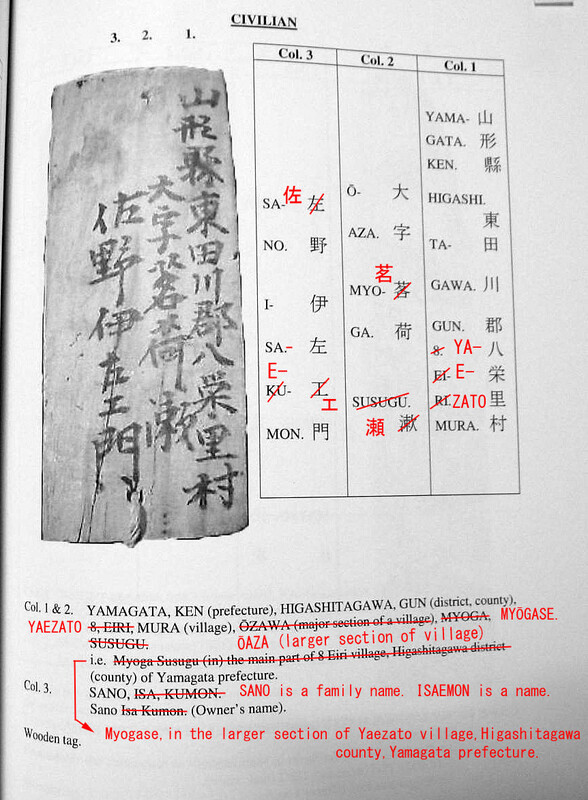 CIVILIAN
3. 2. 1.
山形縣東田川郡八栄里村
大字茗荷瀬
佐野伊左エ門
Col. 3 Col. 2 Col. 1
YAMA- 山
GATA. 形
KEN. 縣
HIGASHI. 東
TA- 田
GAWA. 川
GUN. 郡
8. YA- 八
EI- E- 栄
RI. ZATO 里
MURA. 村
Ō- 大
AZA. 字
MYO- 茗 茗
GA. 荷
SUSUGU. 瀬 漱
SA- 佐 左
NO. 野
I- 伊
SA.- 左
E-
KU- 工 エ
MON. 門
Col. 1 & 2. YAMAGATA, KEN (prefecture), HIGASHITAGAWA, GUN (district, county),
YAEZATO 8, EIRI, MURA (village), ŌZAWA (major section of a village), MYOGA, MYŌGASE.
SUSUGU. ŌAZA (larger section of village)
i.e. Myoga Susugu (in) the main part of 8 Eiri village, Higashitagawa district
(county) of Yamagata prefecture.
Col. 3. SANO, ISA, KUMON. SANO is a family name. ISAEMON is a name.
Sano Isa Kumon. (Owner's name).
Wooden tag. Myogase, in the larger section of Yaezato village, Higashitagawa
county, Yamagata prefecture.